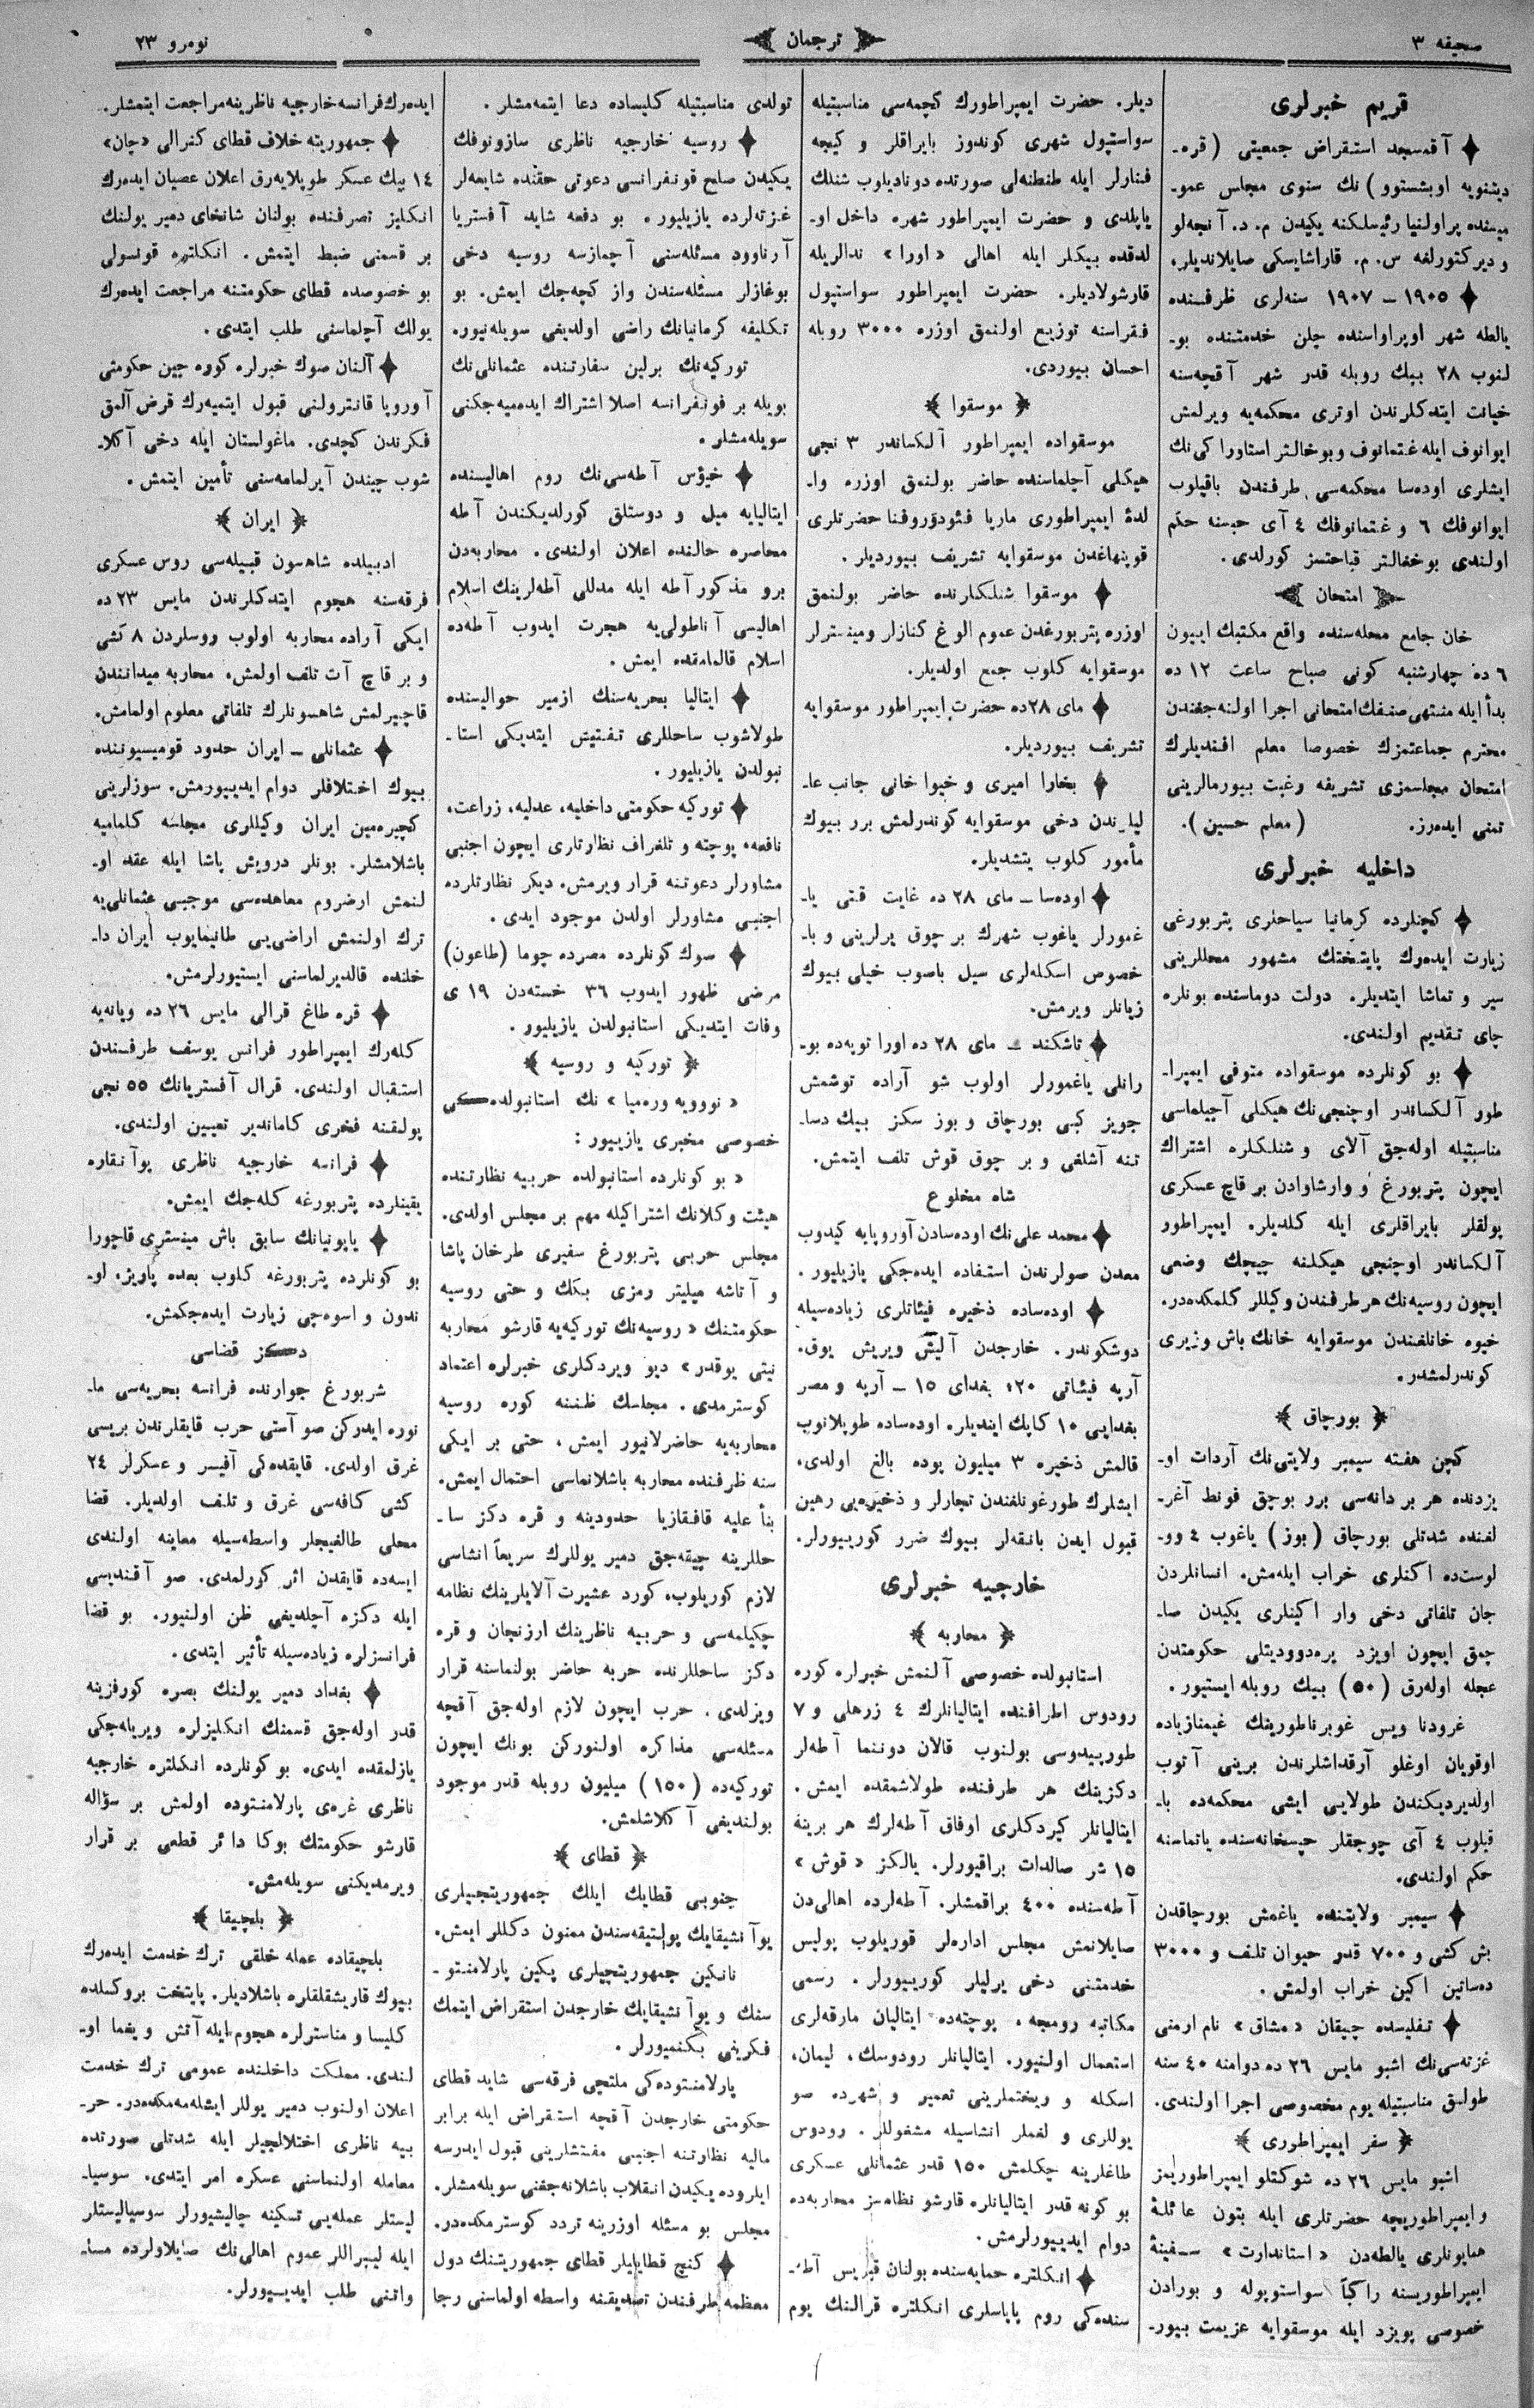 صحیفه ٣
ترجمان
نومرو ٢٣
قریم خبرلری
آقمسجد استقراض جمعیتی (قره‌ـ
دیتنویه اوبشستوو) نك سنوی مجلس عمو‌ـ
میسنده پراولنیا رئیسلكنه یكیدن م. د. آنجه‌لو
و دیركتورلغه س. م. قاراشایسكی صایلاندیلر.
١٩٠٥ – ١٩٠٧ سنه‌لری ظرفنده
یالطه شهر اوپراواسنده چلن خدمتنده بو‌ـ
لنوب ٢٨ بیك روبله قدر شهر آقچه‌سنه
خیانت ایتدكلرندن اوتری محكمه‌یه ویرلمش
ایوانوف ایله غتمانوف و بوخالتر استاوراكی نك
ایشلری اوده‌سا محكمه‌سی طرفندن باقیلوب
ایوانوفك ٦ و غتمانوفك ٤ آی حبسنه حكم
اولندی بوخغالتر قباحتسز كورلدی.
امتحان
خان جامع محله‌سنده واقع مكتبك اییون
٦ ده چهارشنبه كونی صباح ساعت ١٢ ده
بدأ ایله منتهی صنفك امتحانی اجرا اولنه‌جغندن
محترم جماعتمزك خصوصا معلم افندیلرك
امتحان مجلسمزی تشریفه رغبت بیورمالرینی
تمنی ایده‌رز. (معلم حسین).
داخلیه خبرلری
كچنلرده كرمانیا سیاحلری پتربورغی
زیارت ایده‌رك پایتختك مشهور محللرینی
سیر و تماشا ایتدیلر. دولت دوماسنده بونلره
چای تقدیم اولندی.
بو كونلرده موسقواده متوفی ایمپرا‌ـ
طور آلكساندر اوچنجی نك هیكلی آچیلماسی
مناسبتیله اوله‌جق آلای و شنلكلره اشتراك
ایچون پتربورغ و وارشاوادن بر قاچ عسكری
پولقلر بایراقلری ایله كلدیلر. ایمپراطور
آلكساندر اوچنجی هیكلنه چیچك وضعی
ایچون روسیه نك هر طرفندن وكیللر كلمكده‌در.
خیوه خانلغندن موسقوایه خانك باش وزیری
كوندرلمشدر.
بورچاق
كچن هفته سیمبر ولایتی نك آردات او‌ـ
یزدنده هر بر دانه‌سی برر بوچق فونط آغر‌ـ
لغنده شدتلی بورچاق (بوز) یاغوب ٤ وو‌ـ
لوستده اكنلری خراب ایله‌مش. انسانلردن
جان تلفاتی دخی وار اكینلری یكیدن صا‌ـ
چمق ایچون اویزد پره‌دوودیتلی حكومتدن
عجله اوله‌رق (٥٠) بیك روبله ایستیور.
غرودنا ویس غوبرناطورینك غیمنازیاده
اوقویان اوغلو آرقداشلرندن برینی آتوب
اولدیردیكندن طولایی ایشی محكمه‌ده با‌ـ
قیلوب ٤ آی چوجقلر حبسخانه‌سنده یاتماسنه
حكم اولندی.
سیمبر ولایتنده یاغمش بورچاقدن
بش كشی و ٧٠٠ قدر حیوان تلف و ٣٠٠٠
ده‌ساتین اكین خراب اولمش.
تفلیسده چیقان «مشاق» نام ارمنی
غزته‌سی نك اشبو مایس ٢٦ ده دوامنه ٤٠ سنه
طولق مناسبتیله یوم مخصوصی اجرا اولندی.
سفر ایمپراطوری
اشبو مایس ٢٦ ده شوكتلو ایمپراطوریمز
و ایمپراطوریچه حضرتلری ایله بتون عائلهٔ
همایونلری یالطه‌دن «استاندارت» سفینهٔ
ایمپراطوریسنه راكباً سواستوپوله و بورادن
خصوصی پویزد ایله موسقوایه عزیمت بیور‌ـ
دیلر. حضرت ایمپراطورك كچمه‌سی مناسبتیله
سواستپول شهری كوندوز بایراقلر و كیجه
فنارلر ایله طنطنه‌لی صورتده دونادیلوب شنلك
یاپلدی و حضرت ایمپراطور شهره داخل او‌ـ
لدقده بیكلر ایله اهالی «اورا» ندالریله
قارشولادیلر. حضرت ایمپراطور سواستپول
فقراسنه توزیع اولنمق اوزره ٣٠٠٠ روبله
احسان بیوردی.
موسقوا
موسقواده ایمپراطور آلكساندر ٣ نجی
هیكلی آچلماسنده حاضر بولنمق اوزره وا‌ـ
لدهٔ ایمپراطوری ماریا فئودوروفنا حضرتلری
قوپنهاغدن موسقوایه تشریف بیوردیلر.
موسقوا شنلكلرنده حاضر بولنمق
اوزره پتربورغدن عموم الوغ كنازلر و مینسترلر
موسقوایه كلوب جمع اولدیلر.
مای ٢٨ ده حضرت ایمپراطور موسقوایه
تشریف بیوردیلر.
بخارا امیری و خیوا خانی جانب عا‌ـ
لیلرندن دخی موسقوایه كوندرلمش برر بیوك
مأمور كلوب یتشدیلر.
اوده‌سا – مای ٢٨ ده غایت قتی یا‌ـ
غمورلر یاغوب شهرك بر چوق یرلرینی و با‌ـ
خصوص اسكله‌لری سیل باصوب خیلی بیوك
زیانلر ویرمش.
تاشكند – مای ٢٨ ده اورا توپه‌ده بو‌ـ
رانلی یاغمورلر اولوب شو آراده توشمش
جویز كبی بورچاق و بوز سكز بیك دسا‌ـ
تنه آشلغی و بر چوق قوش تلف ایتمش.
شاه مخلوع
محمد علی نك اوده‌سادن آوروپایه كیدوب
معدن صولرندن استفاده ایده‌جكی یازیلیور.
اوده‌ساده ذخیره فیئاتلری زیاده‌سیله
دوشكوندر. خارجدن آلیش ویریش یوق.
آرپه فیئاتی ٢٠، بغدای ١٥ – آرپه و مصر
بغدایی ١٠ كاپك ایندیلر. اوده‌ساده طوپلانوب
قالمش ذخیره ٣ میلیون پوده بالغ اولدی.
ایشلرك طورغونلغندن تجارلر و ذخیره‌یی رهین
قبول ایدن بانقه‌لر بیوك ضرر كوریییورلر.
خارجیه خبرلری
محاربه
استانبولده خصوصی آلنمش خبرلره كوره
رودوس اطرافنده ایتالیانلرك ٤ زرهلی و ٧
طورپیدوسی بولنوب قالان دوننما آطه‌لر
دكزینك هر طرفنده طولاشمقده ایمش.
ایتالیانلر كیردكلری اوفاق آطه‌لرك هر برینه
١٥ شر صالدات براقیورلر. یالكز «قوش»
آطه‌سنده ٤٠٠ براقمشلر. آطه‌لرده اهالی دن
صایلانمش مجلس اداره‌لر قوریلوب پولیس
خدمتنی دخی یرلیلر كوریییورلر. رسمی
مكاتبه رومجه، پوچته‌ده ایتالیان مارقه‌لری
استعمال اولنیور. ایتالیانلر رودوسك، لیمان،
اسكله و ریختملرینی تعمیر و شهرده صو
یوللری و لغملر انشاسیله مشغوللر. رودوس
طاغلرینه چكلمش ١٥٠ قدر عثمانلی عسكری
بو كونه قدر ایتالیانلره قارشو نظامسز محاربه‌ده
دوام ایدییورلرمش.
انكلتره حمایه‌سنده بولنان قبریس آطه‌ـ
سنده‌كی روم پاپاسلری انكلتره قرالنك یوم
تولدی مناسبتیله كلیساده دعا ایتمه‌مشلر.
روسیه خارجیه ناظری سازونوفك
یكیدن صلح قونفرانسی دعوتی حقنده شایعه‌لر
غزته‌لرده یازیلیور. بو دفعه شاید آفستریا
آرناوود مسئله‌سنی آچمازسه روسیه دخی
بوغازلر مسئله‌سندن واز كچه‌جك ایمش. بو
تكلیفه كرمانیانك راضی اولدیغی سویله‌نیور.
توركیه نك برلین سفارتنده عثمانلی نك
بویله بر قونفرانسه اصلا اشتراك ایده‌میه‌جكنی
سویله‌مشلر.
خیؤس آطه‌سی نك روم اهالیسنده
ایتالیایه میل و دوستلق كورلدیكندن آطه
محاصره حالنده اعلان اولندی. محاربه‌دن
برو مذكور آطه ایله مدللی آطه‌لرینك اسلام
اهالیسی آناطولی یه هجرت ایدوب آطه‌ده
اسلام قالمامقده ایمش.
ایتالیا بحریه‌سنك ازمیر حوالیسنده
طولاشوب ساحللری تفتیش ایتدیكی استا‌ـ
نبولدن یازیلیور.
توركیه حكومتی داخلیه، عدلیه، زراعت،
نافعه، پوچته و تلغراف نظارتلری ایچون اجنبی
مشاورلر دعوتنه قرار ویرمش. دیكر نظارتلرده
اجنبی مشاورلر اولدن موجود ایدی.
صوك كونلرده مصرده چوما (طاعون)
مرضی ظهور ایدوب ٣٦ خسته‌دن ١٩ ی
وفات ایتدیكی استانبولدن یازیلیور.
توركیه و روسیه
«نوویه وره‌میا» نك استانبولده‌كی
خصوصی مخبری یازییور:
«بو كونلرده استانبولده حربیه نظارتنده
هیئت وكلانك اشتراكیله مهم بر مجلس اولدی.
مجلس حربی پتربورغ سفیری طرخان پاشا
و آتاشه میلیتر رمزی بكك و حتی روسیه
حكومتنك «روسیه نك توركیه‌یه قارشو محاربه
نیتی یوقدر» دیو ویردكلری خبرلره اعتماد
كوسترمدی. مجلسك ظننه كوره روسیه
محاربه‌یه حاضرلانیور ایمش، حتی بر ایكی
سنه ظرفنده محاربه باشلانماسی احتمال ایمش.
بنأ علیه قافقازیا حدودینه و قره دكز سا‌ـ
حللرینه چیقه‌جق دمیر یوللرك سریعاً انشاسی
لازم كوریلوب، كورد عشیرت آلایلرینك نظامه
چكیلمه‌سی و حربیه ناظرینك ارزنجان و قره
دكز ساحللرنده حربه حاضر بولنماسنه قرار
ویرلدی. حرب ایچون لازم اوله‌جق آقچه
مسئله‌سی مذاكره اولنوركن بونك ایچون
توركیه‌ده (١٥٠) میلیون روبله قدر موجود
بولندیغی آكلاشلمش.
قطای
جنوبی قطایك ایلك جمهوریتجیلری
یوآنشیقایك پولتیقه‌سندن ممنون دكللر ایمش.
نانكین جمهوریتجیلری پكین پارلامنتو‌ـ
سنك و یوآنشیقایك خارجدن استقراض ایتمك
فكرینی بكنمیورلر.
پارلامنتوده‌كی ملتچی فرقه‌سی شاید قطای
حكومتی خارجدن آقچه استقراض ایله برابر
مالیه نظارتنه اجنبی مفتشلرینی قبول ایدرسه
ایلروده یكیدن انقلاب باشلانه‌جغنی سویله‌مشلر.
مجلس بو مسئله اوزرینه تردد كوسترمكده‌در.
كنچ قطایلیلر قطای جمهوریتنك دول
معظمه طرفندن تصدیقنه واسطه اولماسنی رجا
ایده‌رك فرانسه خارجیه ناظرینه مراجعت ایتمشلر.
جمهوریته خلاف قطای كنرالی «چان»
١٤ بیك عسكر طوپلایه‌رق اعلان عصیان ایده‌رك
انكلیز تصرفنده بولنان شانخای دمیر یولنك
بر قسمنی ضبط ایتمش. انكلتره قونسولی
بو خصوصده قطای حكومتنه مراجعت ایده‌رك
یولك آچلماسنی طلب ایتدی.
آلنان صوك خبرلره كوره چین حكومتی
آوروپا قانترولنی قبول ایتمیه‌رك قرض آلمق
فكرندن كچدی. ماغولستان ایله دخی آكلا‌ـ
شوب چیندن آیرلمامه‌سنی تأمین ایتمش.
ایران
ادبیلده شاهسون قبیله‌سی روس عسكری
فرقه‌سنه هجوم ایتدكلرندن مایس ٢٣ ده
ایكی آراده محاربه اولوب روسلردن ٨ كشی
و بر قاچ آت تلف اولمش. محاربه میدانندن
قاچیرلمش شاهسونلرك تلفاتی معلوم اولمامش.
عثمانلی – ایران حدود قومیسیوننده
بیوك اختلافلر دوام ایدییورمش. سوزلرینی
كچیره‌مین ایران وكیللری مجلسه كلمامیه
باشلامشلر. بونلر درویش پاشا ایله عقد او‌ـ
لنمش ارضروم معاهده‌سی موجبی عثمانلی یه
ترك اولنمش اراضی یی طانیمایوب ایران دا‌ـ
خلنده قالدیرلماسنی ایستیورلرمش.
قره طاغ قرالی مایس ٢٦ ده ویانه‌یه
كله‌رك ایمپراطور فرانس یوسف طرفندن
استقبال اولندی. قرال آفستریانك ٥٥ نجی
پولقنه فخری كاماندیر تعیین اولندی.
فرانسه خارجیه ناظری پوآنقاره
یقینلرده پتربورغه كله‌جك ایمش.
یاپونیانك سابق باش مینستری قاچورا
بو كونلرده پتربورغه كلوب بعده پاریژ، لو‌ـ
ندون و اسوه‌چی زیارت ایده‌جكمش.
دكز قضاسی
شربورغ جوارنده فرانسه بحریه‌سی ما‌ـ
نوره ایدركن صو آستی حرب قایقلرندن بریسی
غرق اولدی. قایقده‌كی آفیسر و عسكرلر ٢٤
كشی كافه‌سی غرق و تلف اولدیلر. قضا
محلی طالغیجلر واسطه‌سیله معاینه اولندی
ایسه‌ده قایقدن اثر كورلمدی. صو آقندیسی
ایله دكزه آچلدیغی ظن اولنیور. بو قضا
فرانسزلره زیاده‌سیله تأثیر ایتدی.
بغداد دمیر یولنك بصره كورفزینه
قدر اوله‌جق قسمنك انكلیزلره ویریله‌جكی
یازلمقده ایدی. بو كونلرده انكلتره خارجیه
ناظری غره‌ی پارلامنتوده اولمش بر سؤاله
قارشو حكومتك بوكا دائر قطعی بر قرار
ویرمدیكنی سویله‌مش.
بلچیقا
بلچیقاده عمله خلقی ترك خدمت ایده‌رك
بیوك قاریشقلقلره باشلادیلر. پایتخت بروكسلده
كلیسا و مناسترلره هجوم ایله آتش و یغما او‌ـ
لندی. مملكت داخلنده عمومی ترك خدمت
اعلان اولنوب دمیر یوللر ایشله‌مه‌مكده‌در. حر‌ـ
بیه ناظری اختلالجیلر ایله شدتلی صورتده
معامله اولنماسنی عسكره امر ایتدی. سوسیا‌ـ
لیستلر عمله‌یی تسكینه چالیشیورلر سوسیالیستلر
ایله لیبراللر عموم اهالی نك صایلاولرده مسا‌ـ
واتنی طلب ایدییورلر.